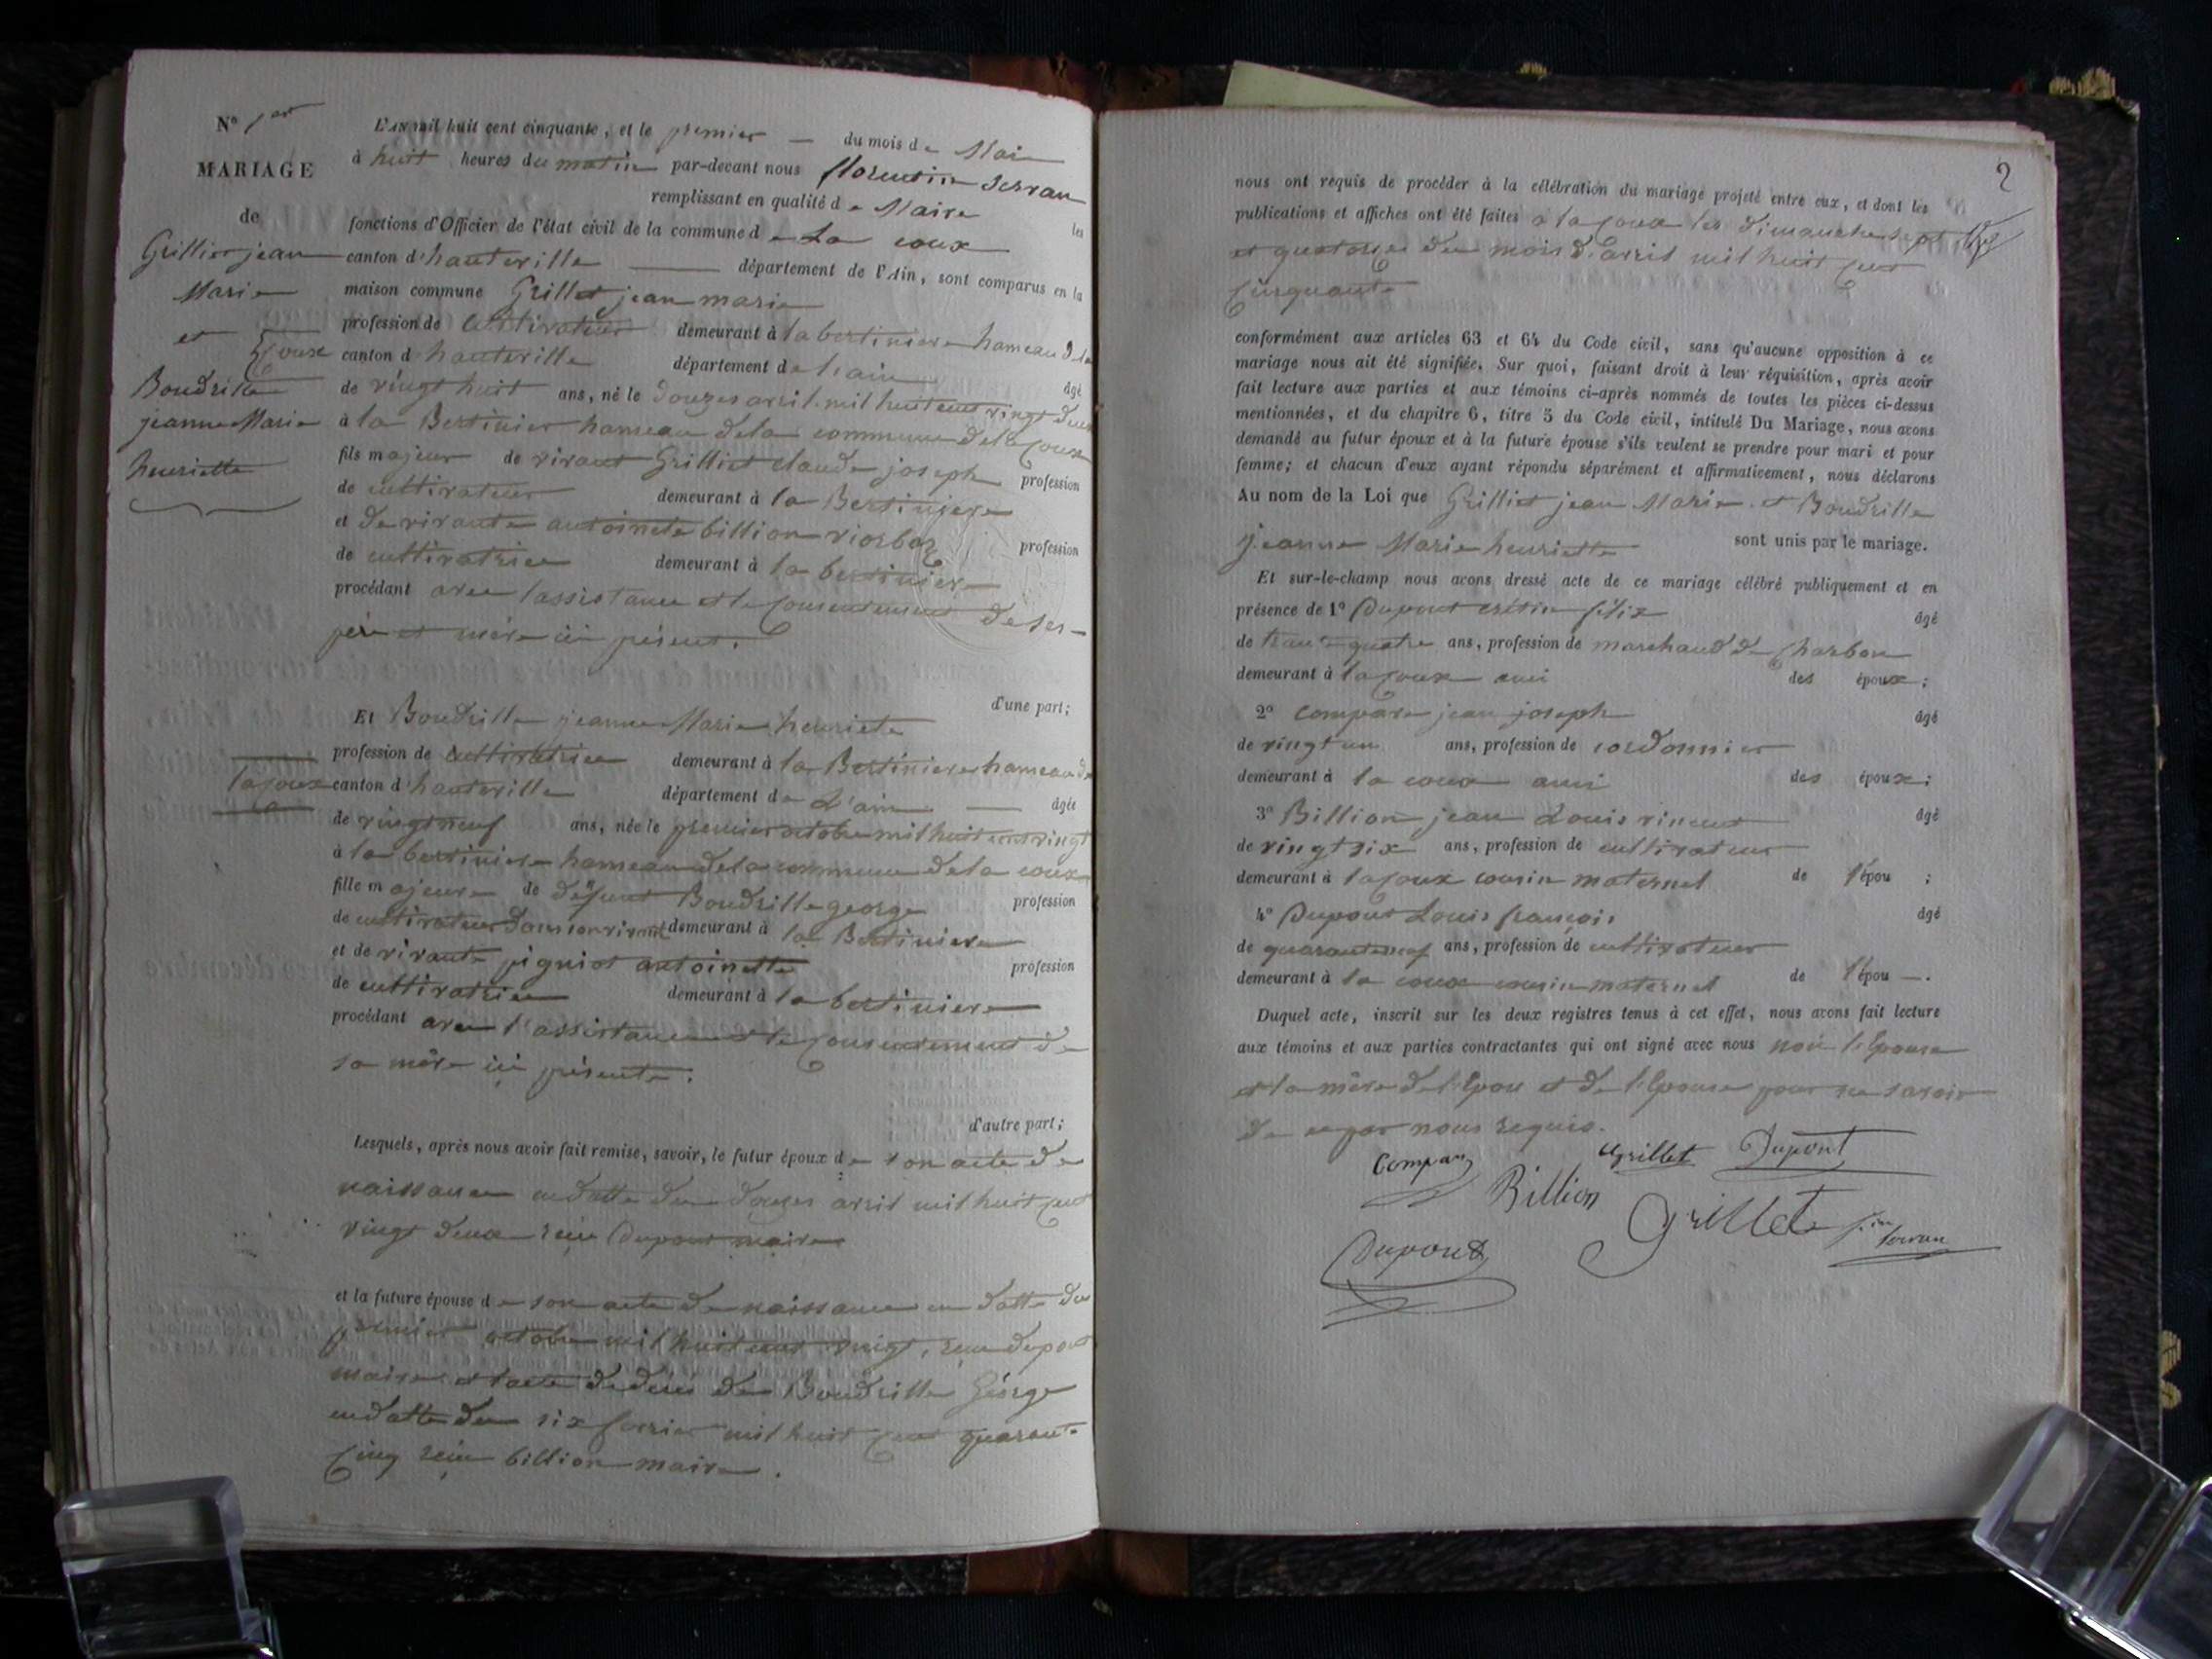 N° 1er
MARIAGE
de
Grilliet jean
Marie
et
Boudrille
jeanne Marie
henriette
L'AN mil huit cent cinquante, et le premier — du mois de Mai
à huit heures du matin par-devant nous florentin Serran
remplissant en qualité de Maire les
fonctions d'Officier de l'état civil de la commune de La coux
canton d'hauteville département de l'Ain, sont comparus en la
maison commune Grillet jean marie
profession de cultivateur demeurant à la bertiniere hameau de la
Coux canton d hauteville département de l'ain âgé
de vingt huit ans, né le douzes avril mil huit cent vingt deux
à la Bertinier hameau de la commune de la Coux
fils majeur de vivant Grilliet claude joseph profession
de cultivateur demeurant à la Bertiniere
et de vivante antoinete billion profession
de cultivatrice demeurant à la bertiniere
procédant avec lassistance et le Consentement de ses
père et mère ici présent.
d'une part;
Et Boudrille jeanne Marie henriete
profession de cultivatrice demeurant à la Bertiniere hameau de
la Coux canton d'hauteville département de L'ain — âgée
de vingt neuf ans, née le premier octobre mil huit cent vingt
à la bertiniere hameau de la commune de la coux
fille majeure de défunt Boudrille george profession
de cultivateur dans son vivant demeurant à la Bertiniere
et de vivante antoinette profession
de cultivatrice demeurant à la bertiniere
procédant avec l'assistance et le Consentement de
sa mère ici présente.
d'autre part;
Lesquels, après nous avoir fait remise, savoir, le futur époux de son acte de
naissance en datte du douzes avril mil huit Cent
vingt deux reçu Dupont maire
et la future épouse de son acte de naissance en datte du
premier octobre mil huit cent vingt, reçu dupont
maire et l'acte de décès de Boudrille Géorge
en datte du six fevrier mil huit Cent quarante
Cinq reçu billion maire.
2
nous ont requis de procéder à la célébration du mariage projeté entre eux, et dont les
publications et affiches ont été faites a la Coux les dimanche sept
et quatorze du mois d'avril mil huit Cent
Cinquante
conformément aux articles 63 et 64 du Code civil, sans qu'aucune opposition à ce
mariage nous ait été signifiée. Sur quoi, faisant droit à leur réquisition, après avoir
fait lecture aux parties et aux témoins ci-après nommés de toutes les pièces ci-dessus
mentionnées, et du chapitre 6, titre 5 du Code civil, intitulé Du Mariage, nous avons
demandé au futur époux et à la future épouse s'ils veulent se prendre pour mari et pour
femme; et chacun d'eux ayant répondu séparément et affirmativement, nous déclarons
Au nom de la Loi que Grilliet jean Marie et Boudrille
jeanne Marie henriette sont unis par le mariage.
Et sur-le-champ nous avons dressé acte de ce mariage célébré publiquement et en
présence de 1° Dupont crétin félix âgé
de trante quatre ans, profession de marchand de Charbon
demeurant à la Coux ami des époux;
2° Compare jean joseph âgé
de vingt un ans, profession de cordonnier
demeurant à la coux ami des époux;
3° Billion jean Louis vincent âgé
de vingt six ans, profession de cultivateur
demeurant à la Coux cousin maternel de l'épou ;
4° Dupont Louis françois âgé
de quarante neuf ans, profession de cultivateur
demeurant à la coux cousin maternel de l'épou —.
Duquel acte, inscrit sur les deux registres tenus à cet effet, nous avons fait lecture
aux témoins et aux parties contractantes qui ont signé avec nous non l'Epouse
et la mère de l'Epou et de l'Epouse pour ne savoir
de ce par nous requis.
Grillet Dupont
Billion
Grillet
Dupont